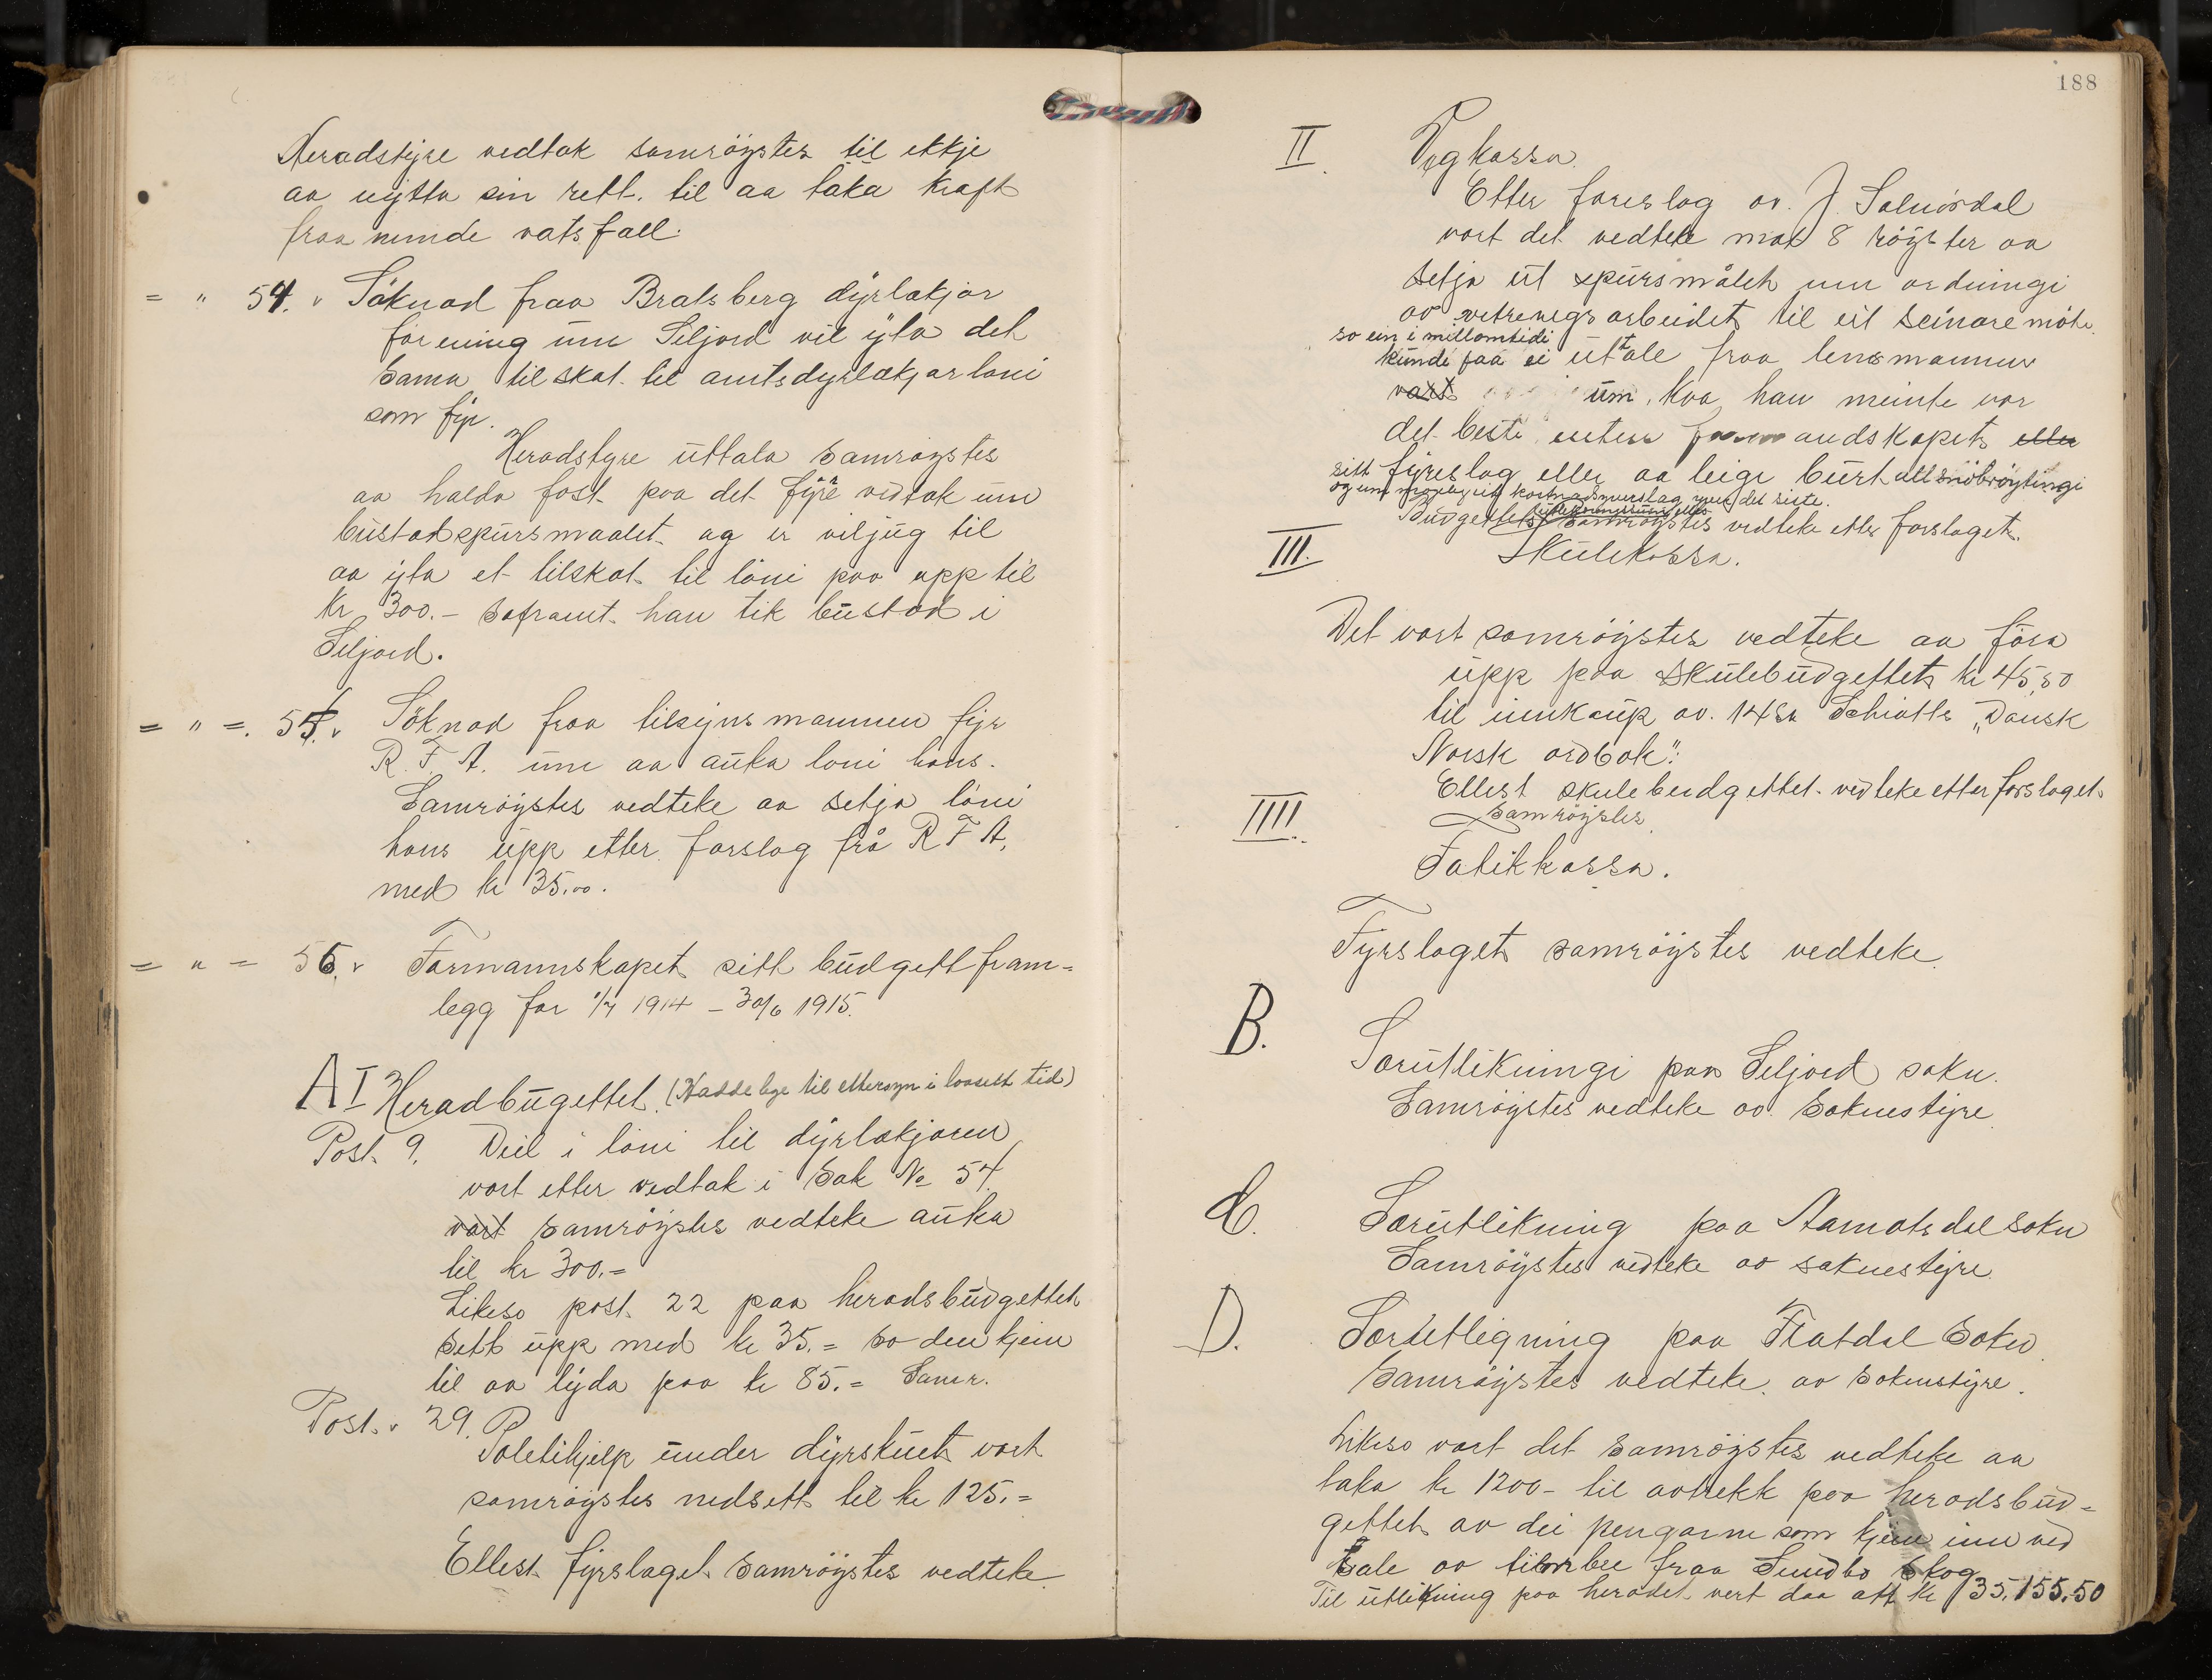 Heradstyre vedtok samröystes til ikkje
aa nytta sin rett. til aa taka kraft
fraa nemde vatsfall.
= " 54. v Söknad fraa Bratsberg dyrlækjar
forening um Seljord vil yta det
sama tilskot til amtsdyrlækjarløni
som fyr.
Heradstyre uttala samröystes
aa halda fast paa det fyrr vedtak um
bustadspursmaalet og er viljug til
aa yta et tilskot til löni paa upp til
kr 300.- soframt han tik bustad i
Seljord.
= " =. 55. v Söknad fraa tilsynsmannen fyr
R. F. A. um aa auka loni hans.
Samröystes vedteke aa setja löni
hans upp etter forslag frå R F A.
med kr 35.00.
= " = 56. v Formannskapet sitt budgettfram-
legg for 1/7 1914 - 30/6 1915.
A I Heradbugettet. (Hadde lege til ettersyn i lovsett tid)
Post 9. Deil i löni til dyrlækjaren
vart etter vedtak i sak No 54.
vart samröystes vedteke auka
til kr 300.=
Likeso post 22 paa heradsbudgettet
sett upp med kr 35.= so den kjem
til aa lyda paa kr 85.= Samr.
Post. v 29. P
Politihjelp under dyrskuet vart
samröystes nedsett til kr 125.=
Ellest fyrslaget samröystes vedteke
188
II Vegkassa.
Etter foreslag av. J. Salmördal
vart det vedteke mot 8 röyster aa
setja ut spursmålet um ordningi
av vetrevegsarbeidet til eit seinare möte.
so ein i millomtidi
kunde faa ei uttale fraa lensmannen
vart um, kva han meinte var
det beste enten formandskapets eller
sitt fyreslag eller aa leige burt all snöbröytingi
og um mogleg eit kostnadsyverslag yver det siste.
Budgettet samröystes vedteke etter forslaget.
III. Skulekassa.
Det vart samröystes vedteke aa föra
upp paa skulebudgettet kr 45,50
til innkaup av. 14 st Schiötts „Dansk
Norsk ordbok".
Ellest skulebudgettet vedteke etter forslaget
samröystes.
IIII. Fatikkassa.
Fyrslaget samröystes vedteke.
B. Særutlikningi paa Seljord sokn.
Samröystes vedteke av soknestyre.
C. Særutlikning paa Aamotsdal sokn
Samröystes vedteke av soknestyre.
D. Særutligning paa Flatdal sokn.
Samröystes vedteke. av soknestyre.
Likeso vart det samröystes vedteke aa
taka kr 1200- til avtrekk paa heradsbud-
gettet av dei pengarne som kjem inn ved
sale av timbre fraa Sundbø Skog
Til utlikning paa heradet vert daa att kr 35.155.50